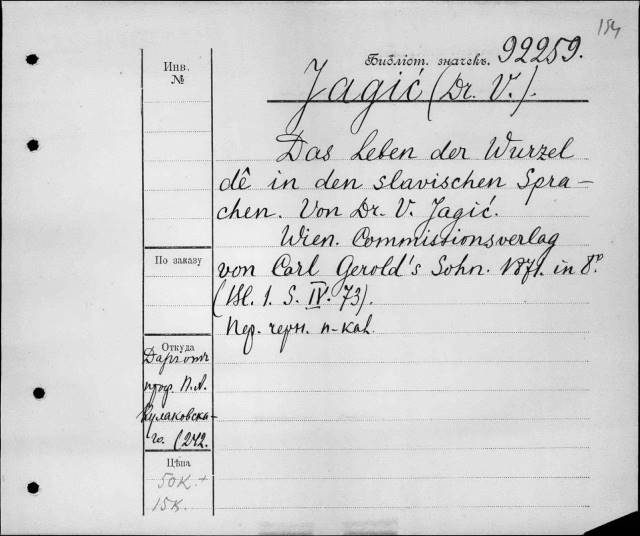 154
Библіот. значекъ. 92259.
Инв.
№
Jagić (Dr. V.).
Das Leben der Wurzel
dê in den slavischen Spra-
chen. Von Dr. V. Jagić.
Wien. Commissionsverlag
von Carl Gerold's Sohn. 1871. in 8º.
(Bl. 1. S. IV. 73).
Пер. черн. п-каl.
По заказу
Откуда
Даръ отъ
проф. П. А.
Кулаковска-
го. (242.
Цѣна
50к. +
15к.